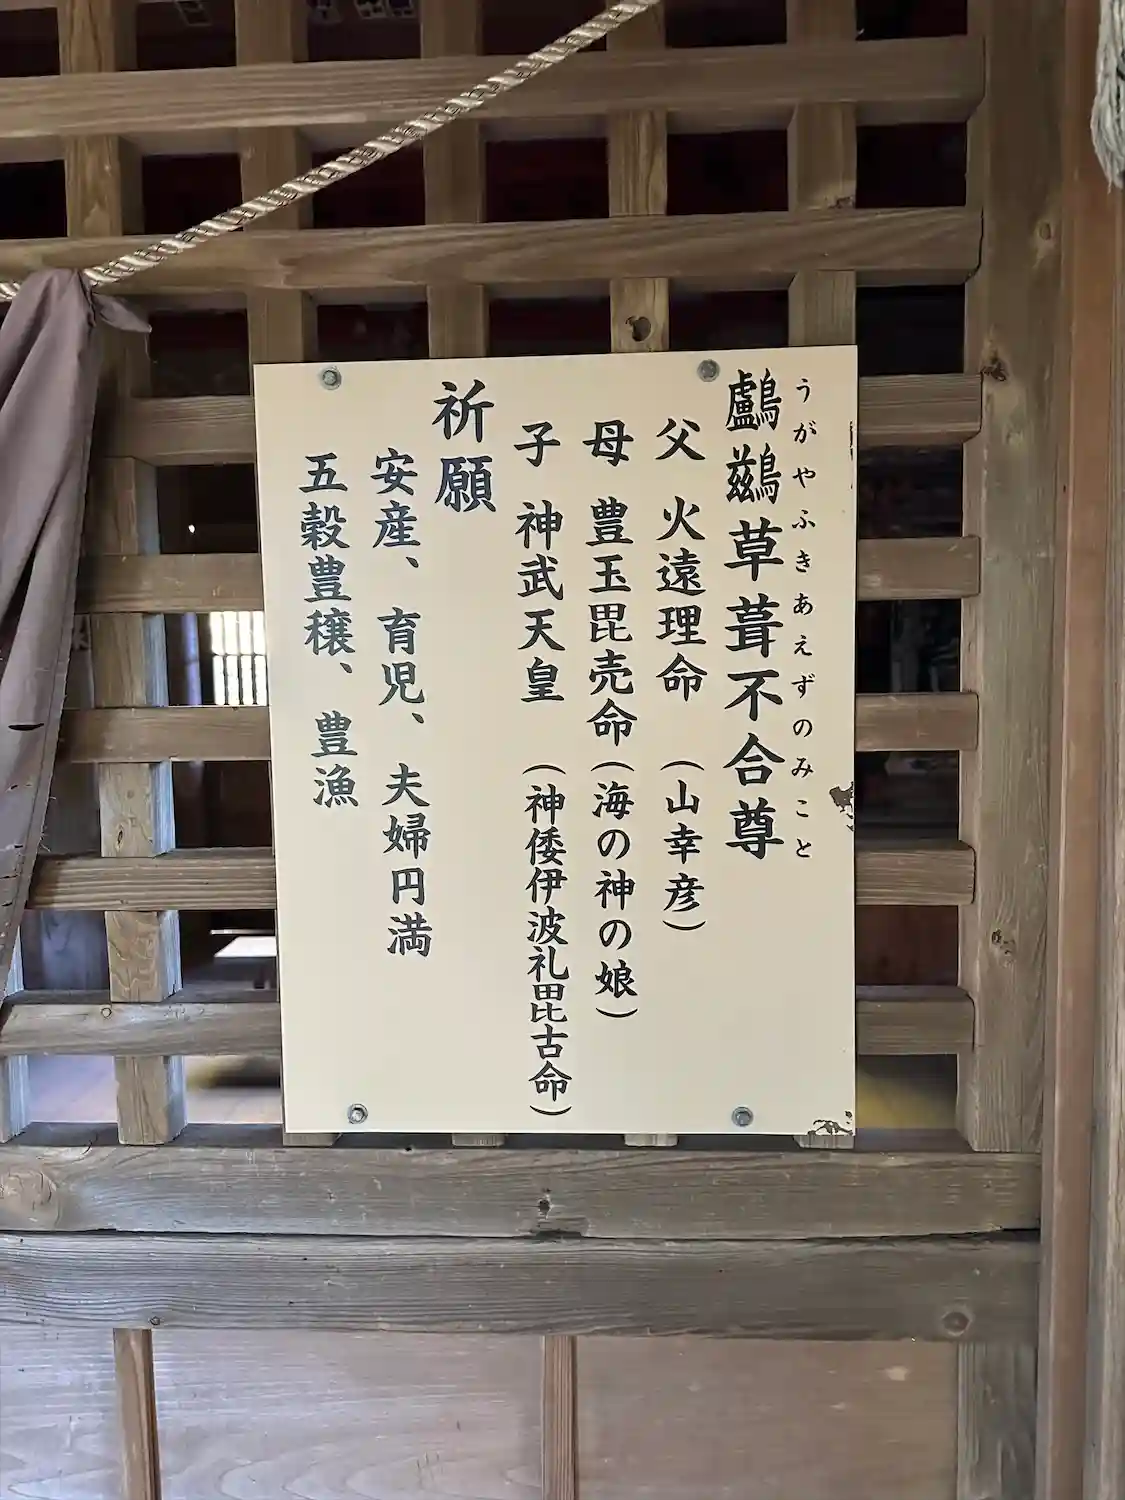 うがやふきあえずのみこと
鸕鷀草葺不合尊
父 火遠理命 (山幸彦)
母 豊玉毘売命(海の神の娘)
子 神武天皇 (神倭伊波礼毘古命)
祈願
安産、育児、夫婦円満
五穀豊穣、豊漁